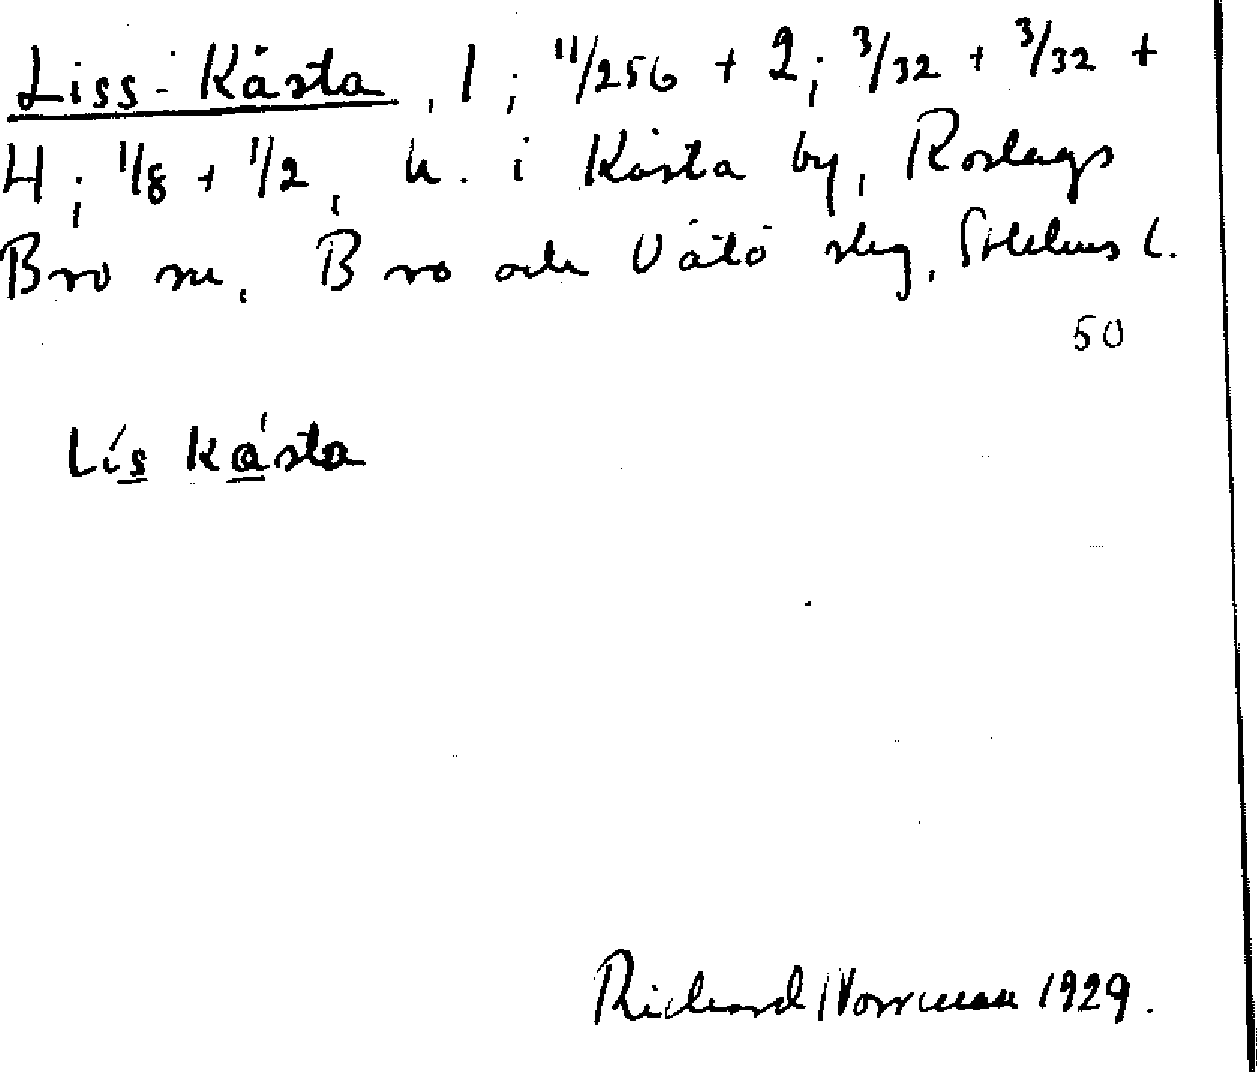 Liss-Kåsta, 1; 11/256 + 2; 3/32 + 3/32 +
4; 1/8 + 1/2, h. i Kåsta by, Roslags
Bro sn, Bro och Vätö slg, Sthlms l.
50
Lís kåsta
Richard Norrman 1929.